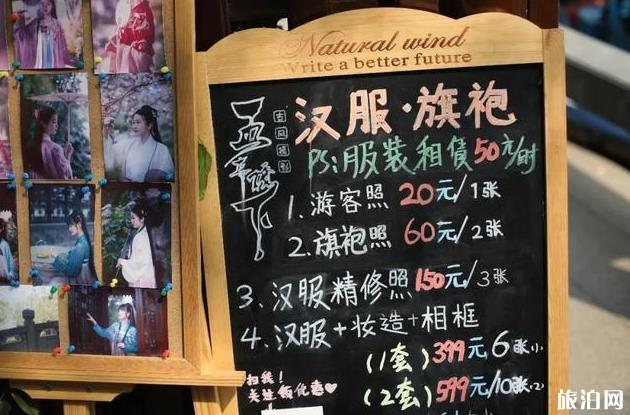 Natural wind
Write a better future
汉服·旗袍
古风摄影
PS:服装租赁50元/时
1.游客照 20元/1张
2.旗袍照 60元/2张
3、汉服精修照150元/3张
4、汉服+妆造+相框
(1套)399元 6张
(2套)599元/10张
扫我!
关注有优惠
旅泊网